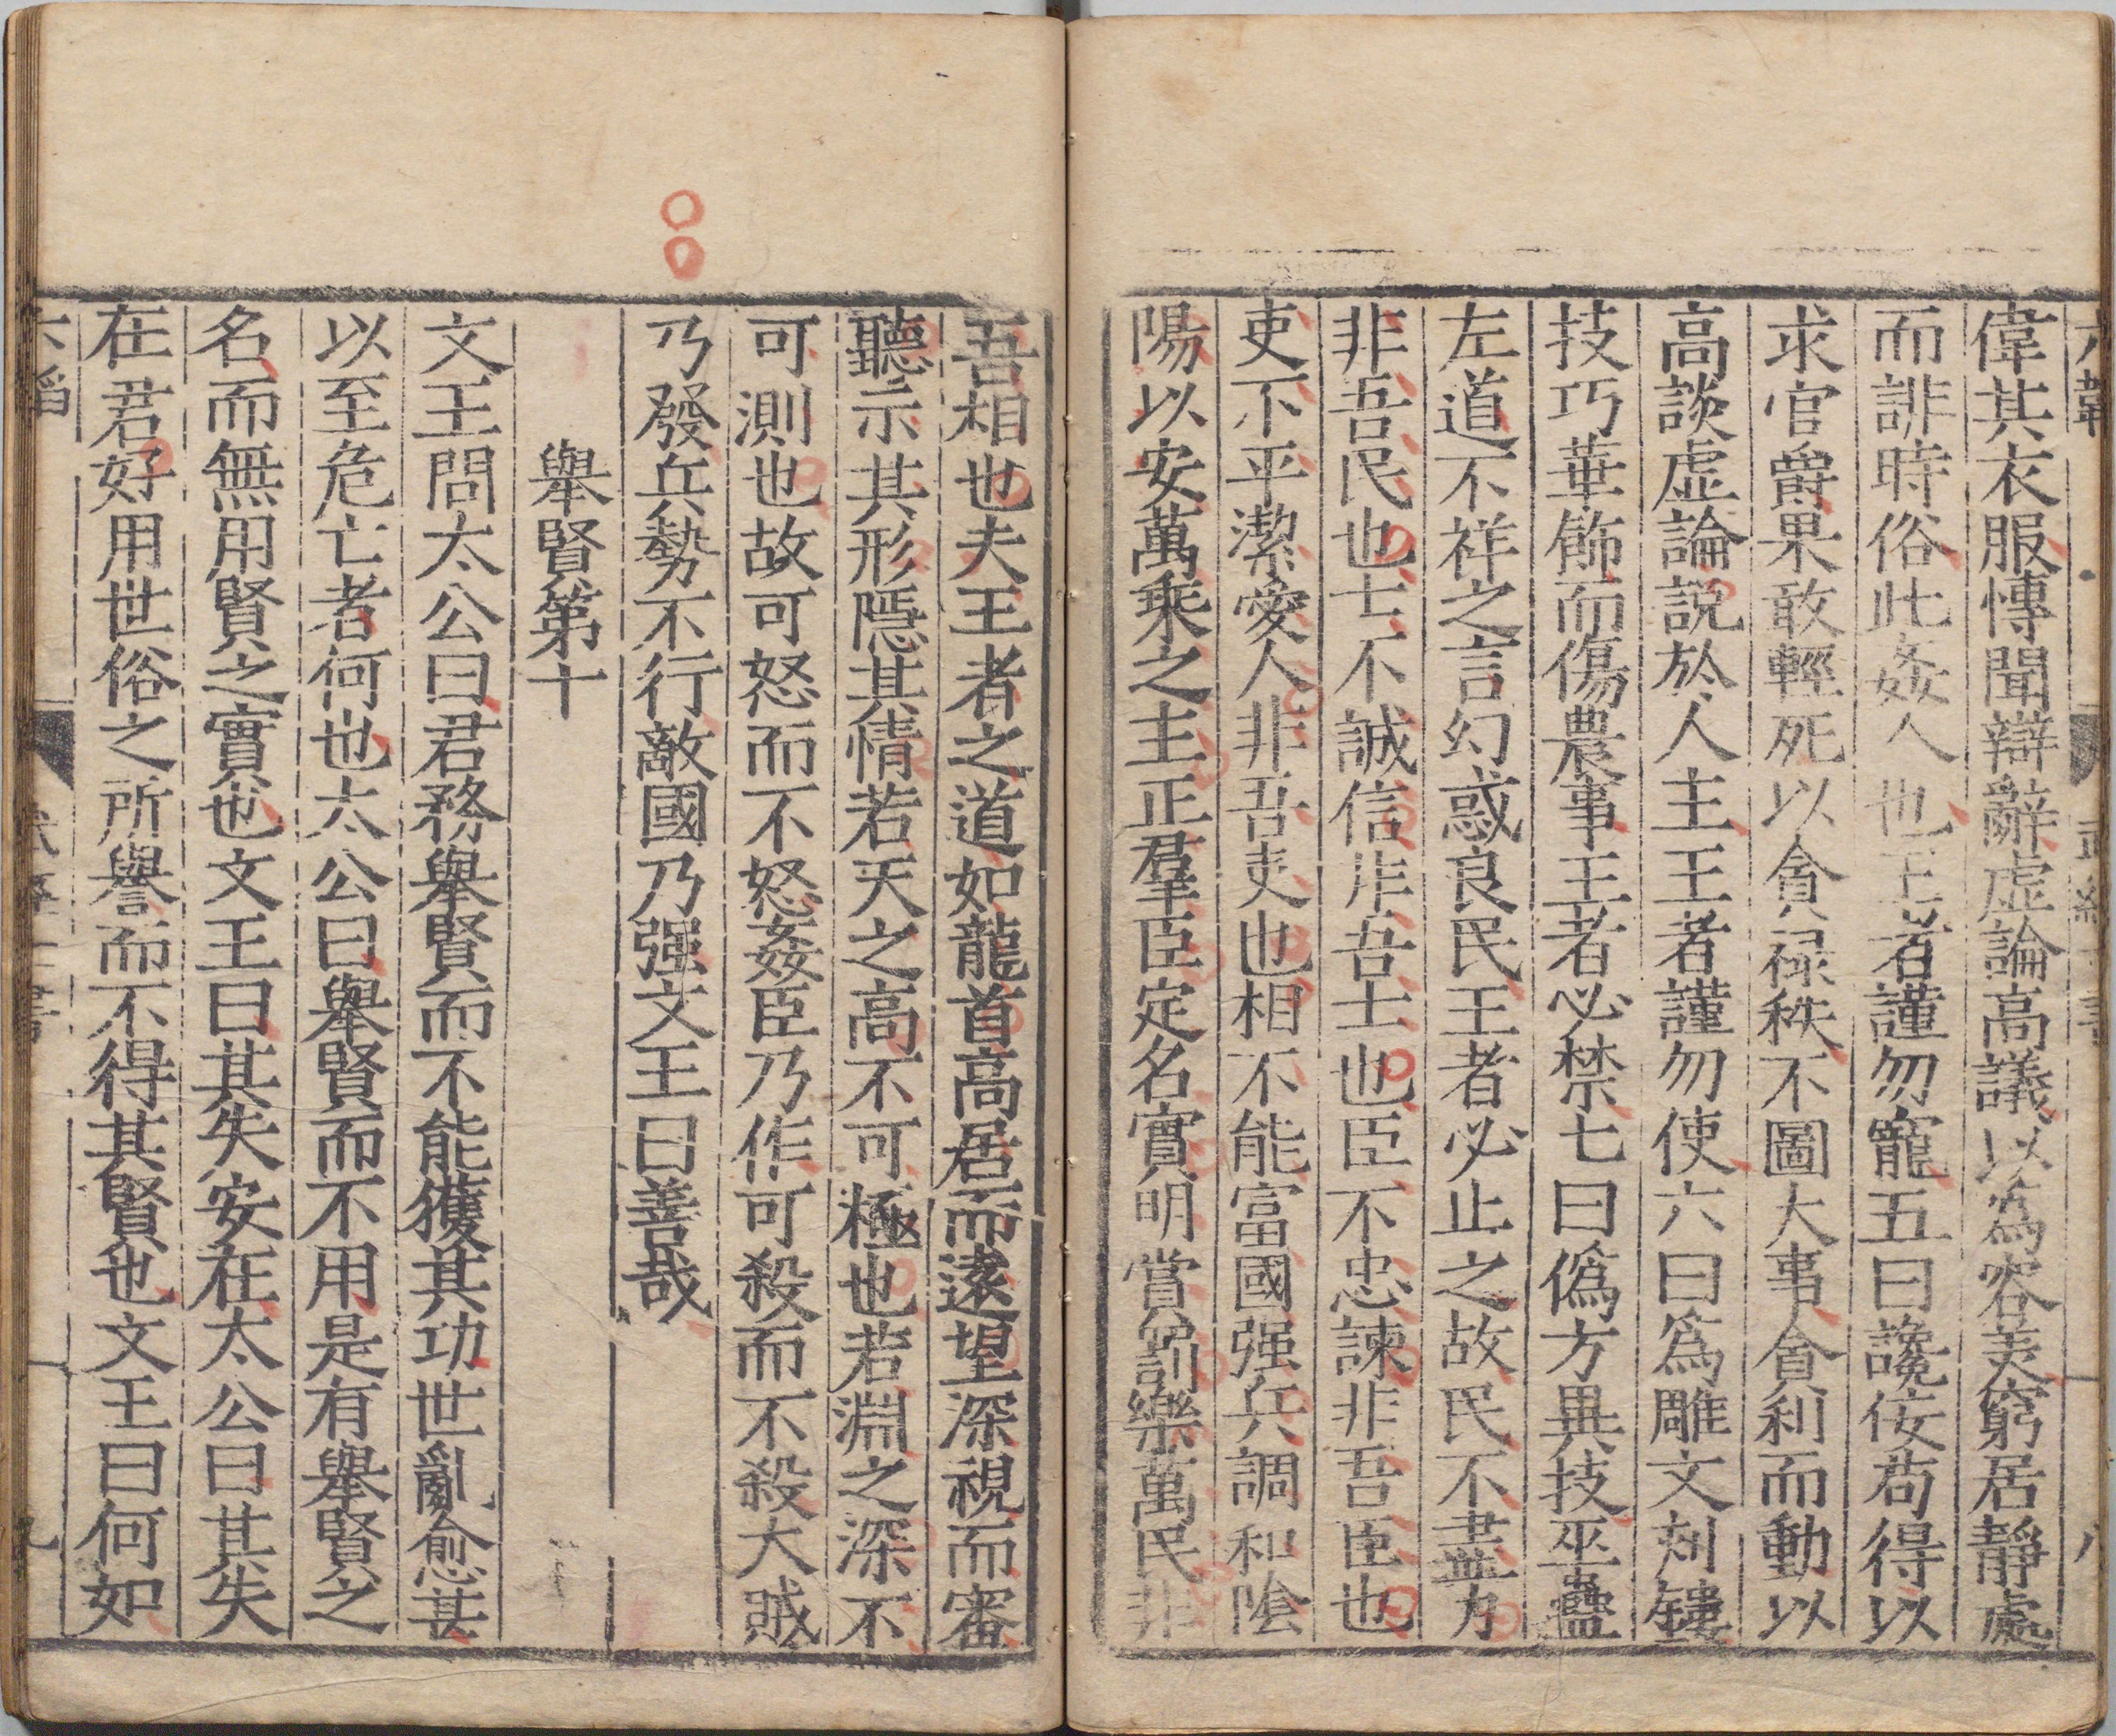 偉其衣服愽聞辯辭虚論高議以爲容美窮居靜處
而誹時俗此姦人也王者謹勿寵五曰讒佞苟得以
求官爵果敢輕死以貪禄秩不圖大事貪利而動以
高談虚論説於人主王者謹勿使六曰爲雕文刻鏤
技巧華飾而傷農事王者必禁七曰僞方異技巫蠱
左道不祥之言幻惑良民王者必止之故民不盡力
非吾民也士不誠信非吾士也臣不忠諫非吾臣也
吏不平潔愛人非吾吏也相不能富國强兵調和陰
陽以安萬乘之主正羣臣定名實明賞罰樂萬民非
吾相也夫王者之道如龍首高居而遠望深視而審
聽示其形隱其情若天之高不可極也若淵之深不
可測也故可怒而不怒姦臣乃作可殺而不殺大賊
乃發兵勢不行敵國乃强文王曰善哉
舉賢第十
文王問太公曰君務舉賢而不能獲其功世亂愈甚
以至危亡者何也太公曰舉賢而不用是有舉賢之
名而無用賢之實也文王曰其失安在太公曰其失
在君好用世俗之所譽而不得其賢也文王曰何如
六韜
九